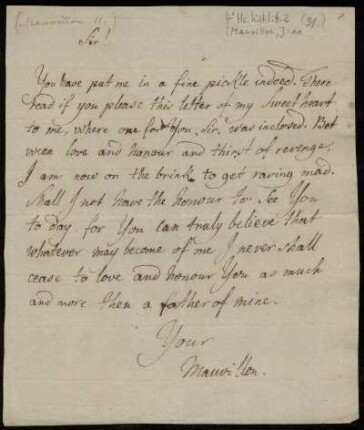 [Mauvillon
Sir!
You have put me in a fine pickle indeed. There
read if you please this letter of my sweet heart
to me, where one for You, Sir, was inclosed. Bet
ween love and honour and thirst of revenge,
I am now on the brink to get raving mad.
Shall I not have the honour to See You
to day, for You can truly believe that
whatever may become of me I never shall
cease to love and honour You as much
and more then a father of mine.
Your
Mauvillon.